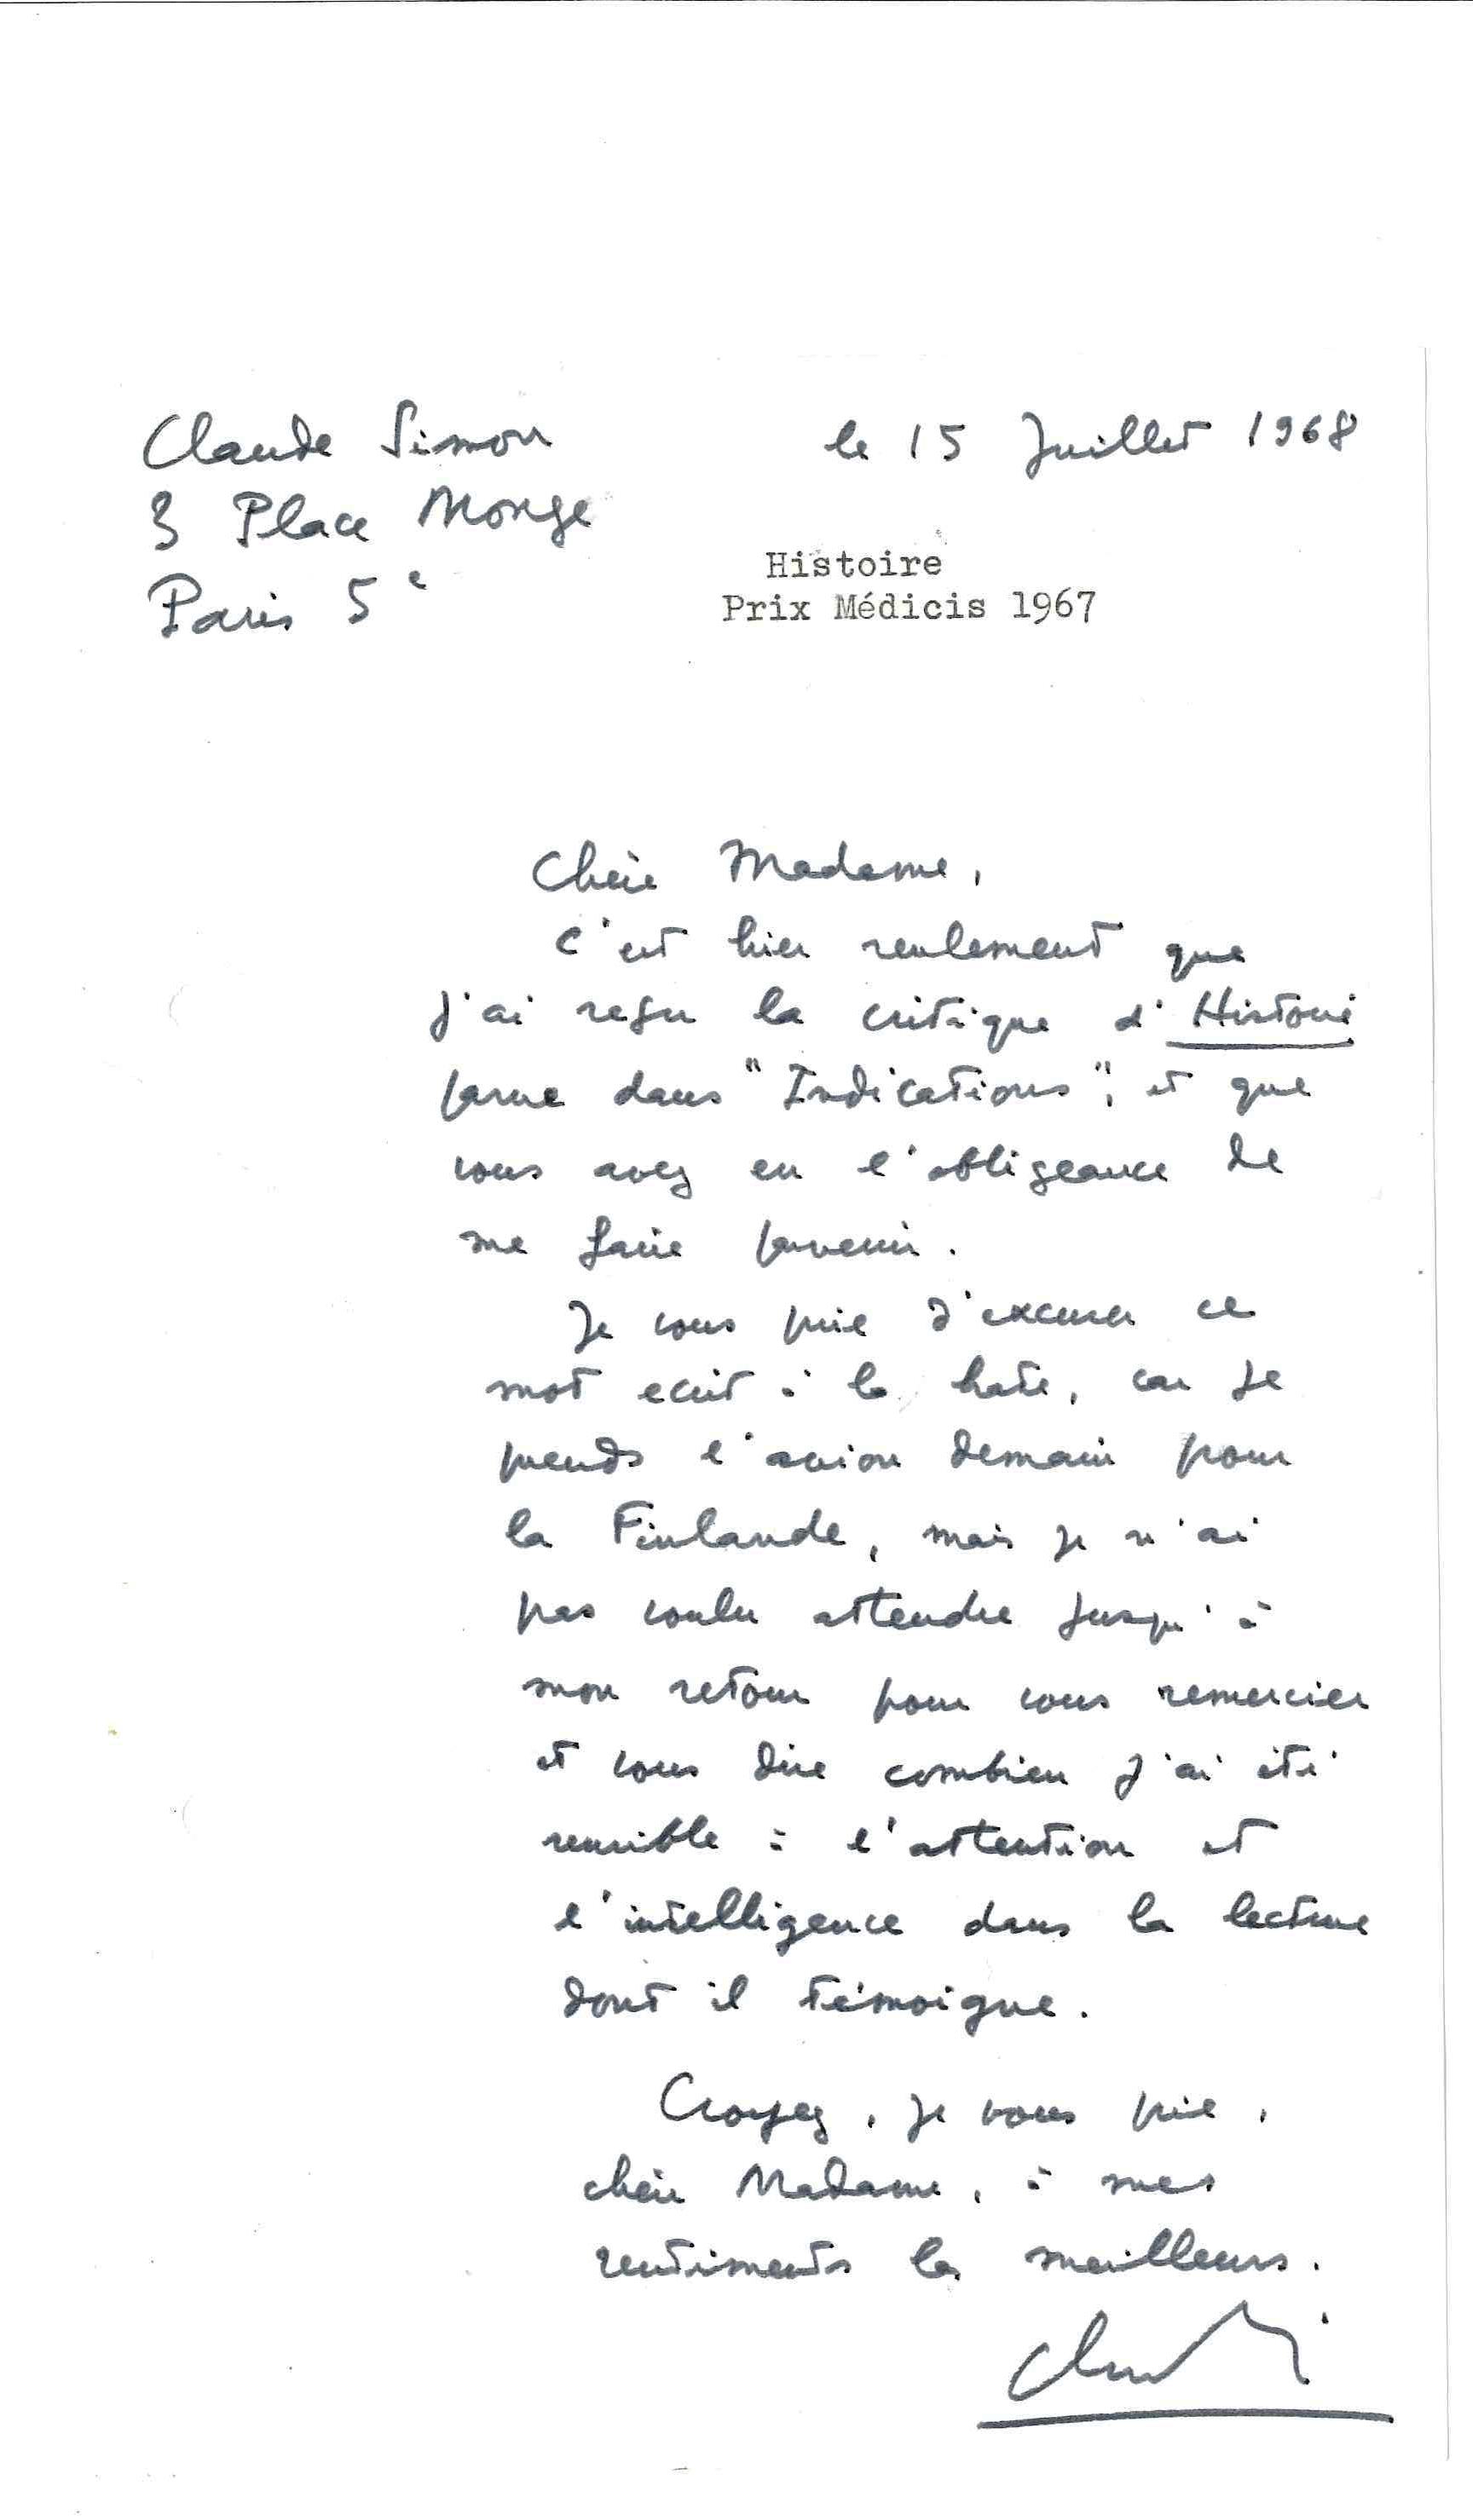 Claude Simon
3 Place Monge
Paris 5e
le 15 Juillet 1968
Histoire
Prix Médicis 1967
Chère Madame,
C'est hier seulement que
j'ai reçu la critique d'Histoire
parue dans "Indications", et que
vous avez eu l'obligeance de
me faire parvenir.
Je vous prie d'excuser ce
mot ecrit à la hate, car je
prends l'avion demain pour
la Finlande, mais je n'ai
pas voulu attendre jusqu'à
mon retour pour vous remercier
et vous dire combien j'ai été
sensible à l'attention et
l'intelligence dans la lecture
dont il témoigne.
Croyez, je vous prie,
chère Madame, à mes
sentiments les meilleurs.